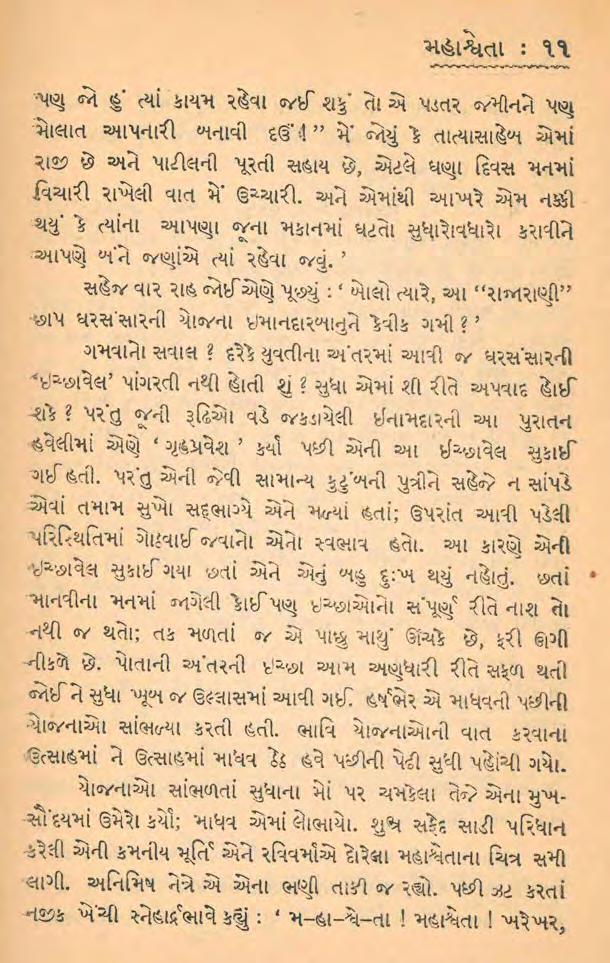 મહાશ્વેતા : ૧૧
પણ જો હું ત્યાં કાયમ રહેવા જઈ શકું તો એ પડતર જમીનને પણ
મોલાત આપનારી બનાવી દઉં !” મેં જોયું કે તાત્યાસાહેબ એમાં
રાજી છે અને પાટીલની પૂરતી સહાય છે, એટલે ઘણા દિવસ મનમાં
વિચારી રાખેલી વાત મેં ઉચ્ચારી. અને એમાંથી આખરે એમ નક્કી
થયું કે ત્યાંના આપણા જૂના મકાનમાં ઘટતો સુધારોવધારો કરાવીને
આપણે બંને જણાંએ ત્યાં રહેવા જવું. ’
સહેજ વાર રાહ જોઈ એણે પૂછ્યું : ‘ બોલો ત્યારે, આ “રાજારાણી”
છાપ ઘરસંસારની યોજના ઇમાનદારબાનુને કેવીક ગમી ? ’
ગમવાનો સવાલ ? દરેકે યુવતીના અંતરમાં આવી જ ઘરસંસારની
‘ઇચ્છાવેલ’ પાંગરતી નથી હોતી શું ? સુધા એમાં શી રીતે અપવાદ હોઈ
શકે ? પરંતુ જૂની રૂઢિઓ વડે જકડાયેલી ઈનામદારની આ પુરાતન
હવેલીમાં એણે ‘ ગૃહપ્રવેશ ’ કર્યા પછી એની આ ઇચ્છાવેલ સુકાઈ
ગઈ હતી. પરંતુ એની જેવી સામાન્ય કુટુંબની પુત્રીને સહેજે ન સાંપડે
એવાં તમામ સુખો સદ્ભાગ્યે એને મળ્યાં હતાં; ઉપરાંત આવી પડેલી
પરિસ્થિતિમાં ગોઠવાઈ જવાનો એનો સ્વભાવ હતો. આ કારણે એની
ઇચ્છાવેલ સુકાઈ ગયા છતાં એને એનું બહુ દુઃખ થયું નહોતું. છતાં
માનવીના મનમાં જાગેલી કોઈ પણ ઇચ્છાઓનો સંપૂર્ણ રીતે નાશ તો
નથી જ થતો; તક મળતાં જ એ પાછુ માથું ઊંચકે છે, ફરી ઊગી
નીકળે છે. પોતાની અંતરની ઇચ્છા આમ અણધારી રીતે સફળ થતી
જોઈ ને સુધા ખૂબ જ ઉલ્લાસમાં આવી ગઈ. હર્ષભેર એ માધવની પછીની
યોજનાઓ સાંભળ્યા કરતી હતી. ભાવિ યોજનાઓની વાત કરવાના
ઉત્સાહમાં ને ઉત્સાહમાં માધવ ઠેઠ હવે પછીની પેઢી સુધી પહોંચી ગયો.
યોજનાઓ સાંભળતાં સુધાના મોં પર ચમકેલા તેજે એના મુખ-
સૌંદયમાં ઉમેરો કર્યો; માધવ એમાં લોભાયો. શુભ્ર સફેદ સાડી પરિધાન
કરેલી એની કમનીય મૂર્તિ એને રવિવર્માએ દોરેલા મહાશ્વેતાના ચિત્ર સમી
લાગી. અનિમિષ નેત્રે એ એના ભણી તાકી જ રહ્યો. પછી ઝટ કરતાં
નજીક ખેંચી સ્નેહાર્દ્રભાવે કહ્યું : ‘ મ–હા–શ્વે–તા ! મહાશ્વેતા ! ખરેખર,